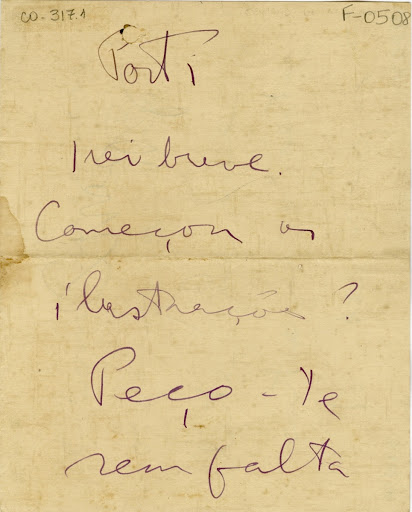 CO-317.1
F-0508
Porti
Irei breve.
Começou as
ilustrações?
Peço-Te
sem falta